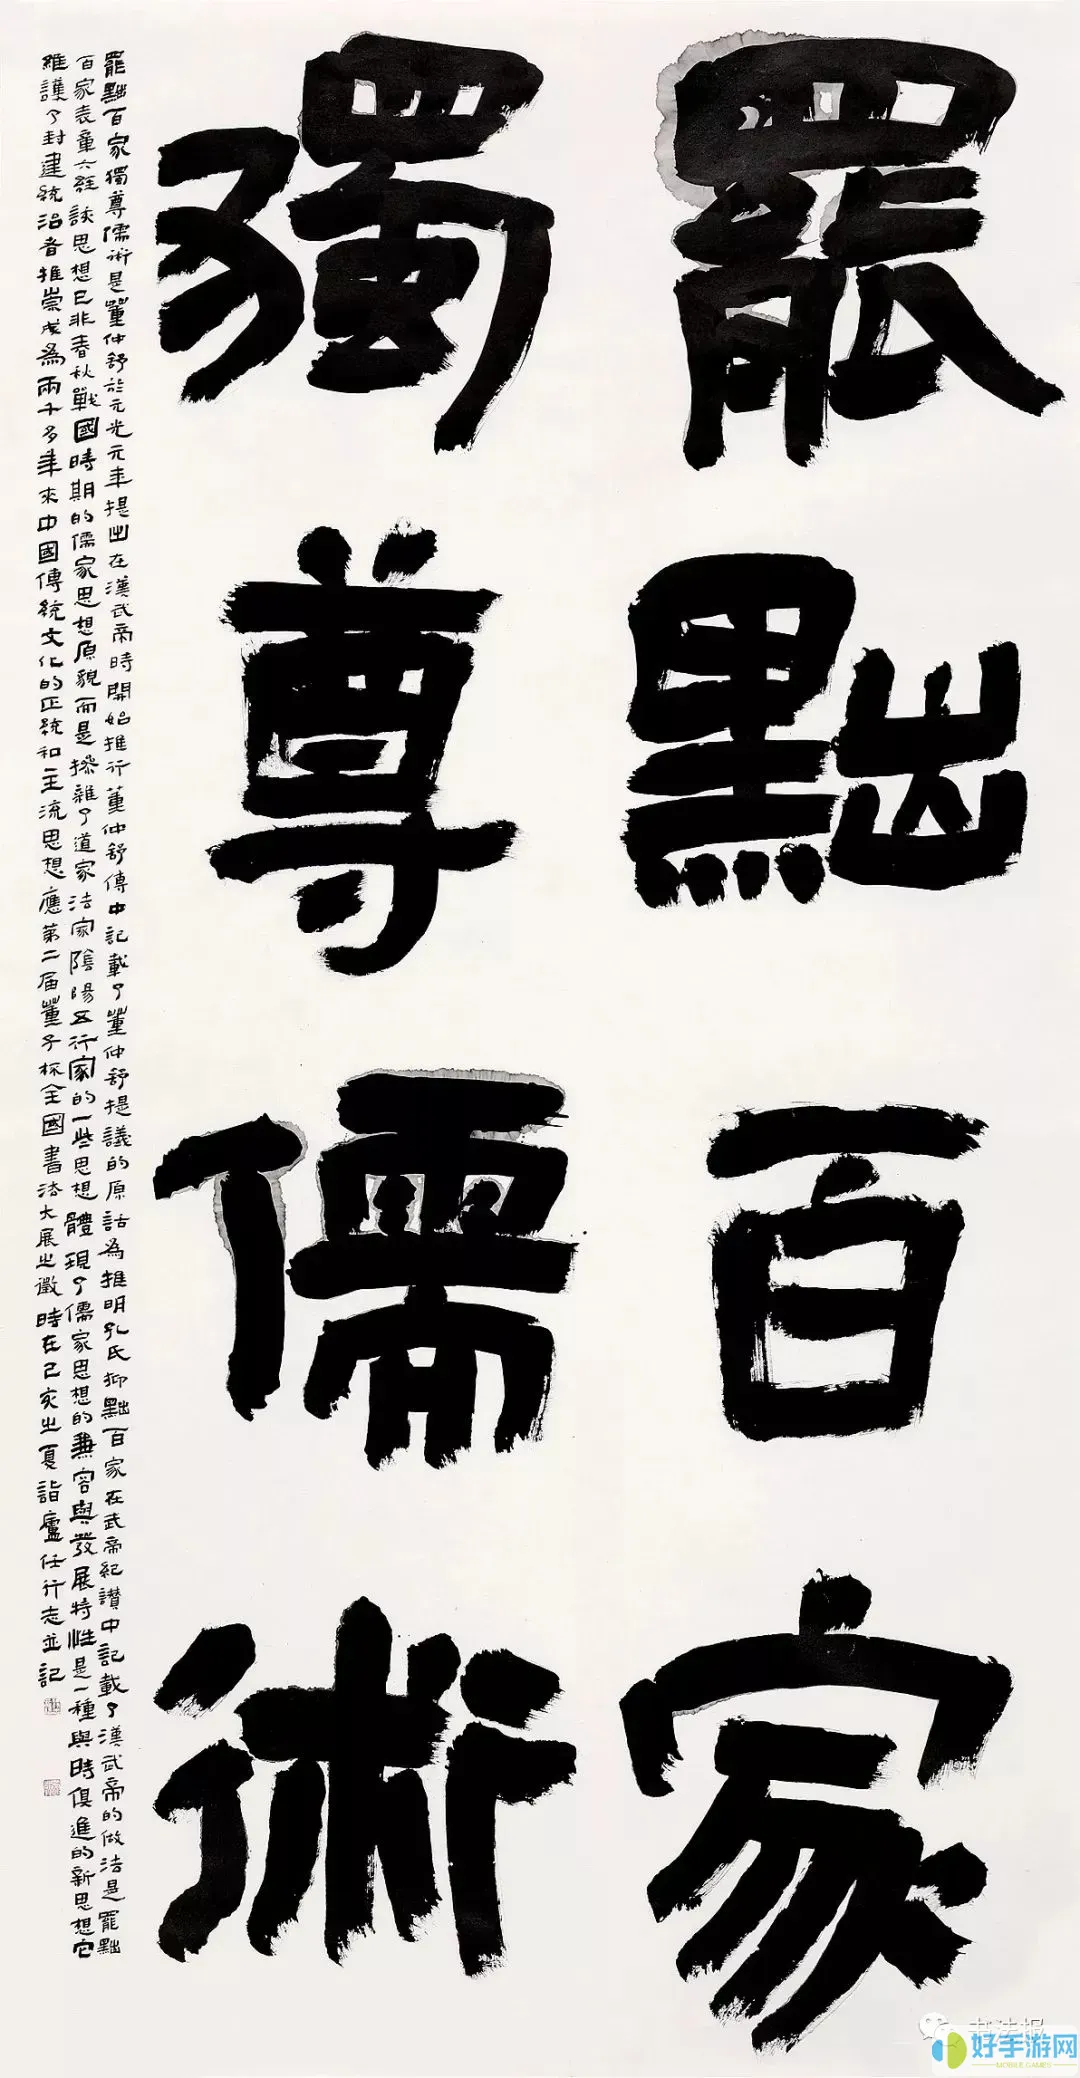 罷黜百家
獨尊儒術
罷黜百家獨尊儒術是董仲舒於元光元年提出在漢武帝時開始推行董仲舒傳中記載了董仲舒提議的原話為推明孔氏抑黜百家在武帝紀讃中記載了漢武帝的做法是罷黜
百家表章六經該思想已非春秋戰國時期的儒家思想原貌而是摻雜了道家法家陰陽五行家的一些思想體現了儒家思想的兼容與發展特性是一種與時俱進的新思想它
維護了封建統治者推崇成為兩千多年來中國傳統文化的正統和主流思想應第二届董子杯全國書法大展之徵時在己亥之夏詣廬任行志並記
书法报
好手游网
MOBILE GAMES